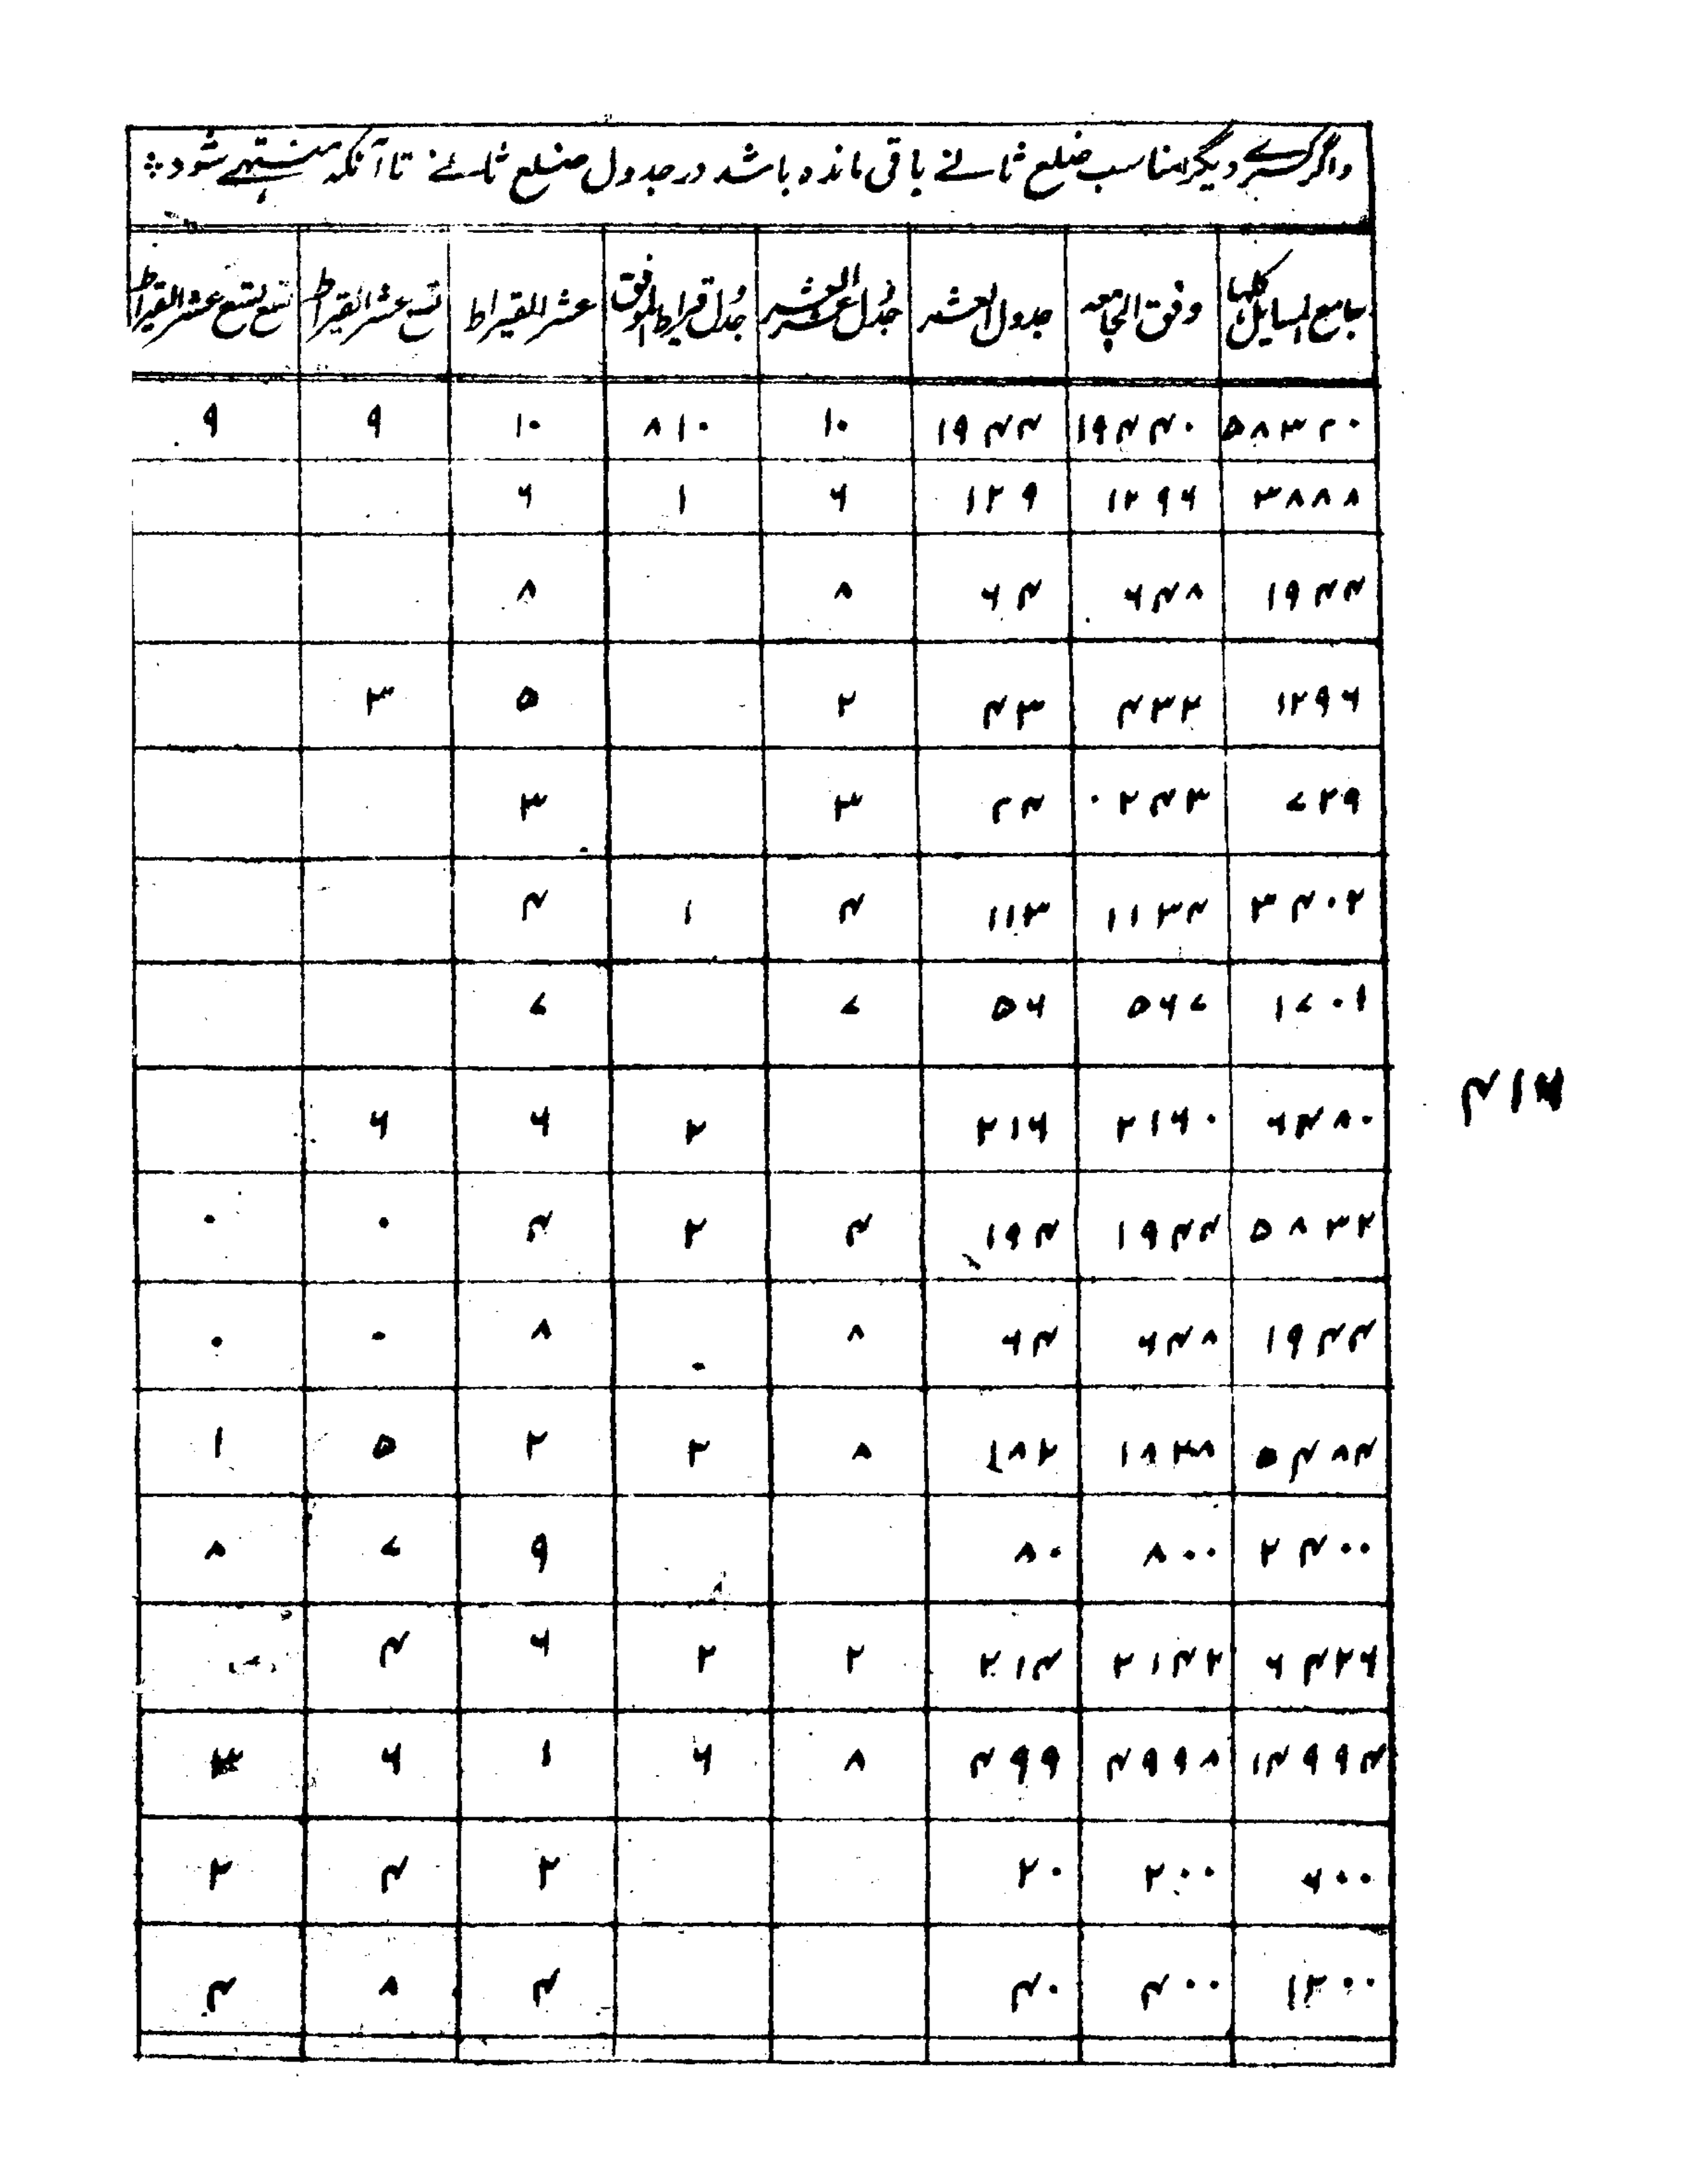 واگر کسرے دیگر مناسب ضلع ثانے باقی مانده باشد در جدول ضلع ثالث تا آنکه منتهے شود
جامع المسایل کلها وفق الجامعه جدول العشر جدول عشر العشر جدول قراریط الوفق عشر القیراط تسع عشر القیراط تسع تسع عشر القیراط
۵۸۳۲۰ ۱۹۴۴۰ ۱۹۴۴ ۱۰ ۸۱۰ ۱۰ ۹ ۹
۳۸۸۸ ۱۲۹۶ ۱۲۹ ۶ ۱ ۶
۱۹۴۴ ۶۴۸ ۶۴ ۸ ۸
۱۲۹۶ ۴۳۲ ۴۳ ۲ ۵ ۳
۷۲۹ ۲۴۳ ۲۴ ۳ ۳
۳۴۰۲ ۱۱۳۴ ۱۱۳ ۴ ۱ ۴
۱۷۰۱ ۵۶۷ ۵۶ ۷ ۷
۶۴۸۰ ۲۱۶۰ ۲۱۶ ۲ ۶ ۶
۴۱۳
۵۸۳۲ ۱۹۴۴ ۱۹۴ ۴ ۲ ۴ ۰ ۰
۱۹۴۴ ۶۴۸ ۶۴ ۸ ۰ ۸ ۰ ۰
۵۴۸۴ ۱۸۲۸ ۱۸۲ ۸ ۲ ۲ ۵ ۱
۲۴۰۰ ۸۰۰ ۸۰ ۹ ۷ ۸
۶۴۲۶ ۲۱۴۲ ۲۱۴ ۲ ۲ ۶ ۴
۱۴۹۹۴ ۴۹۹۸ ۴۹۹ ۸ ۶ ۱ ۶ ۳
۶۰۰ ۲۰۰ ۲۰ ۲ ۴ ۲
۱۲۰۰ ۴۰۰ ۴۰ ۴ ۸ ۴